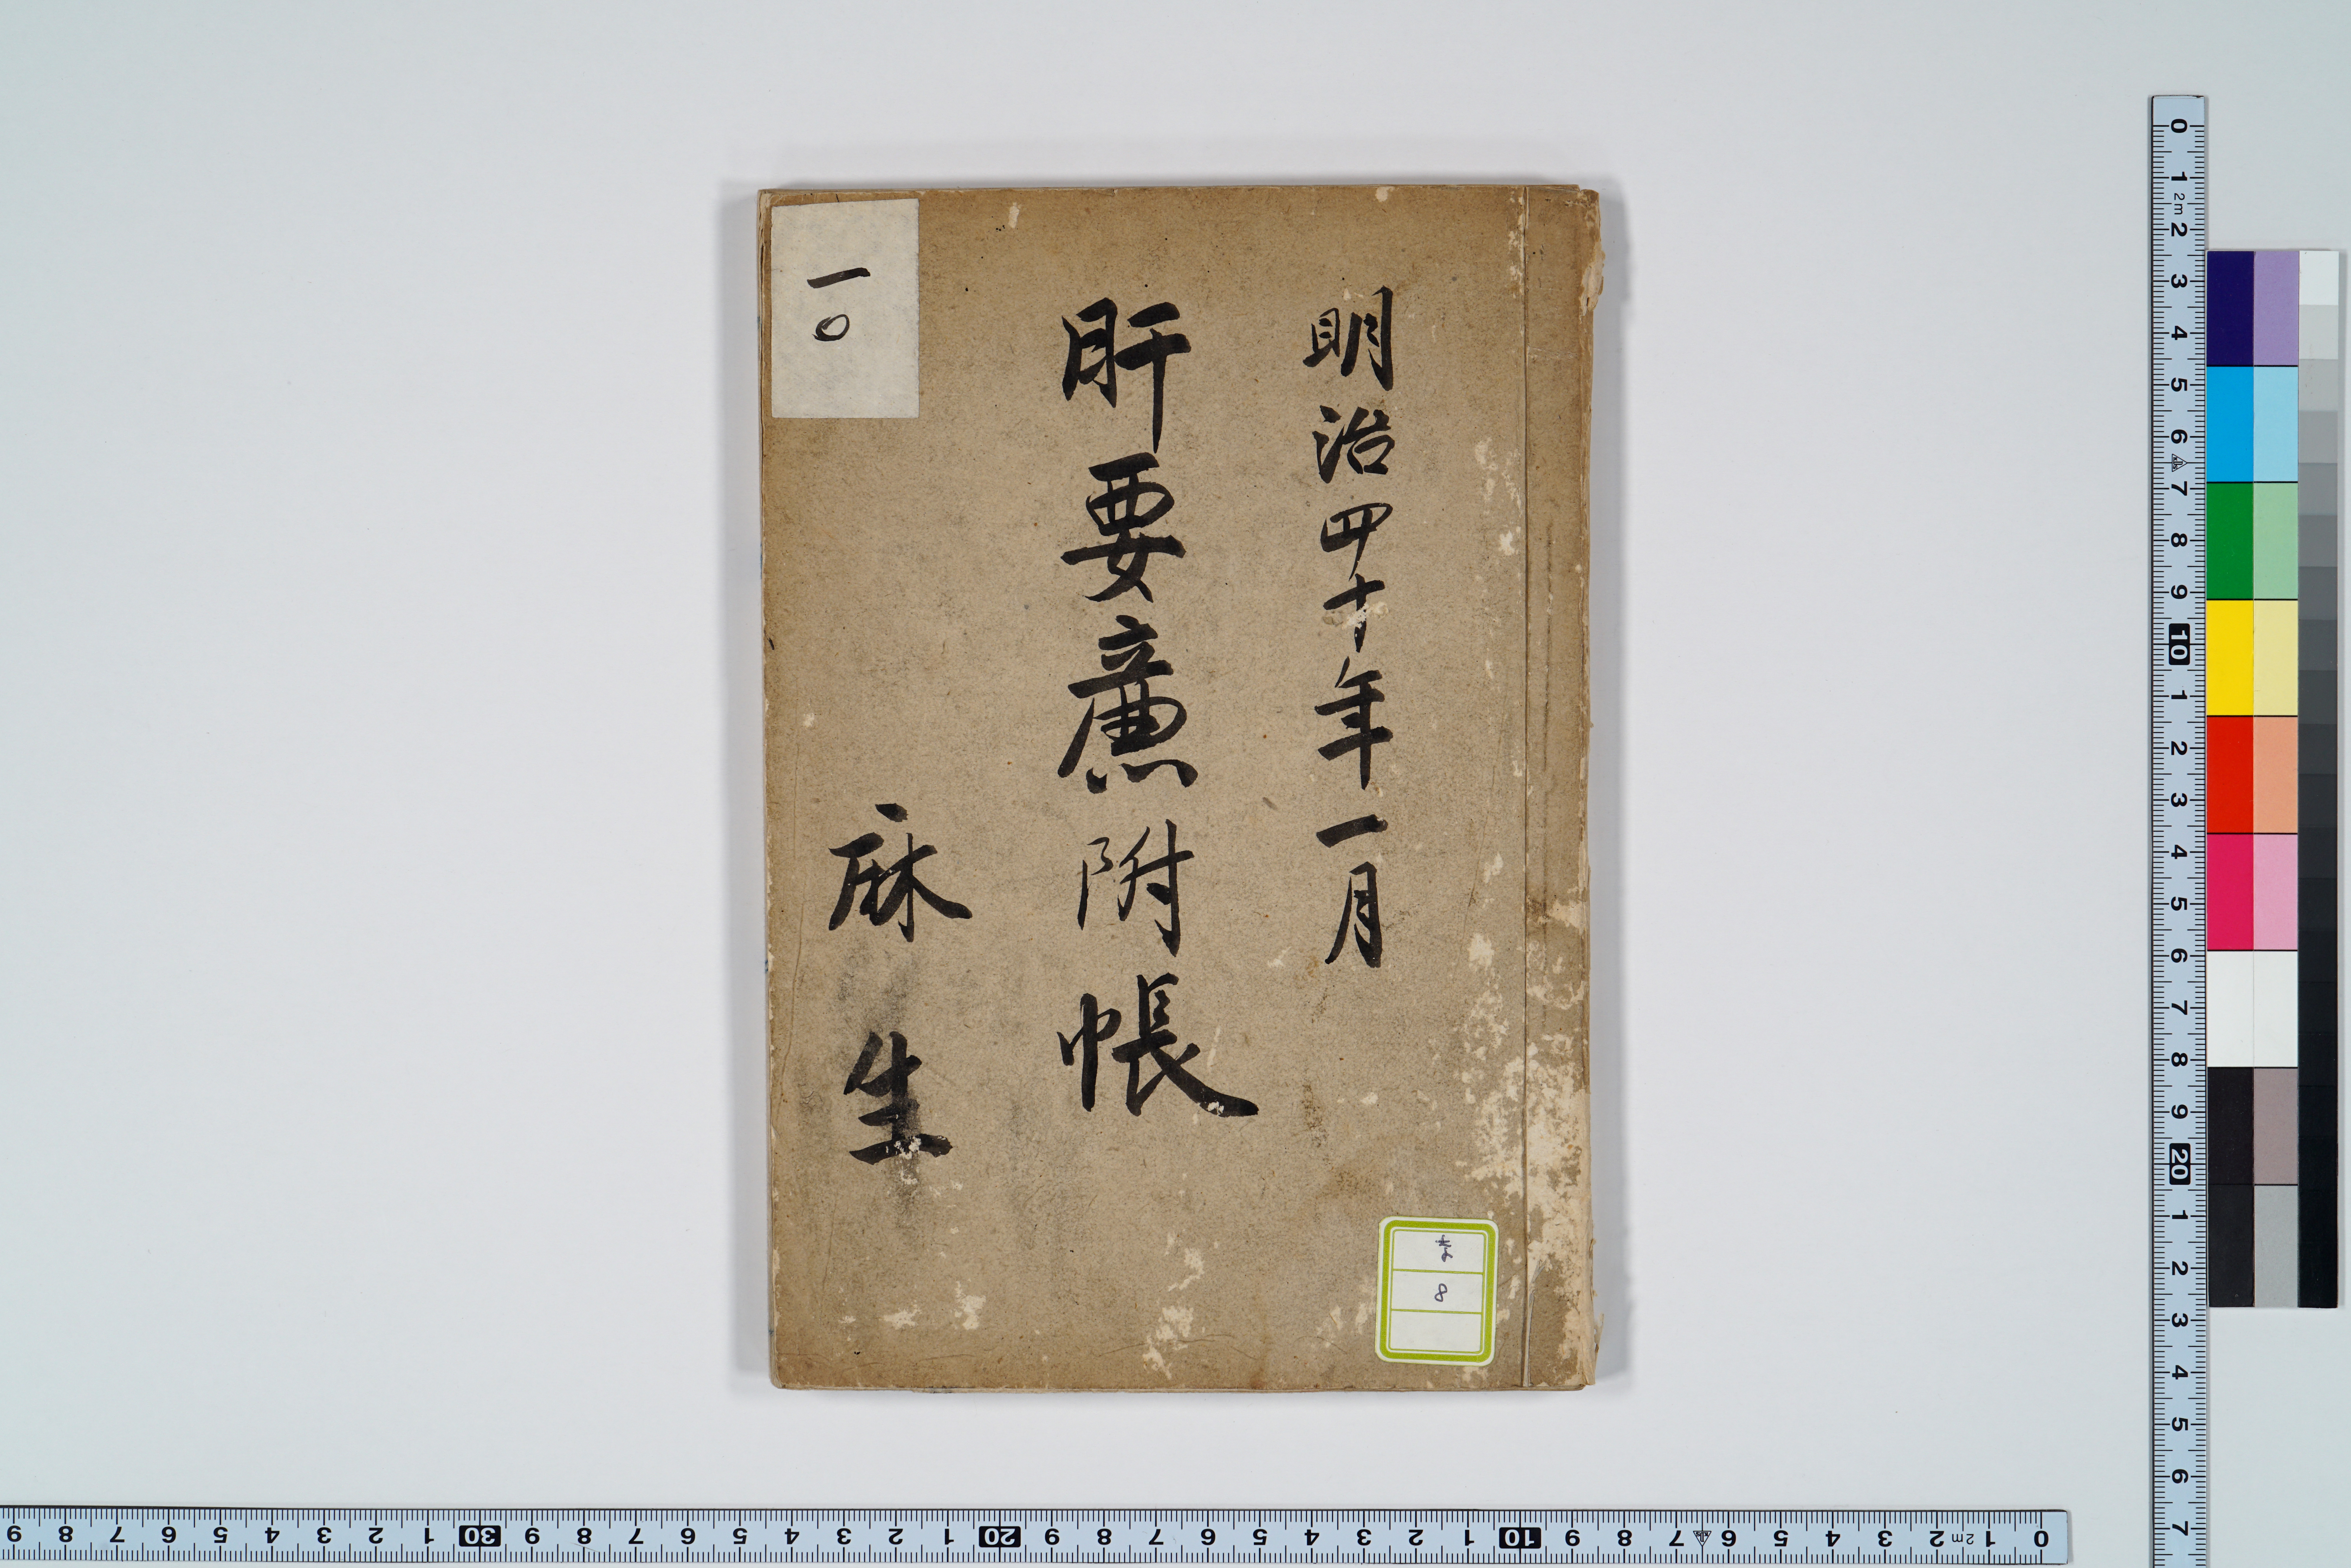 明治四十年一月
肝要廉附帳
麻生
一〇
8